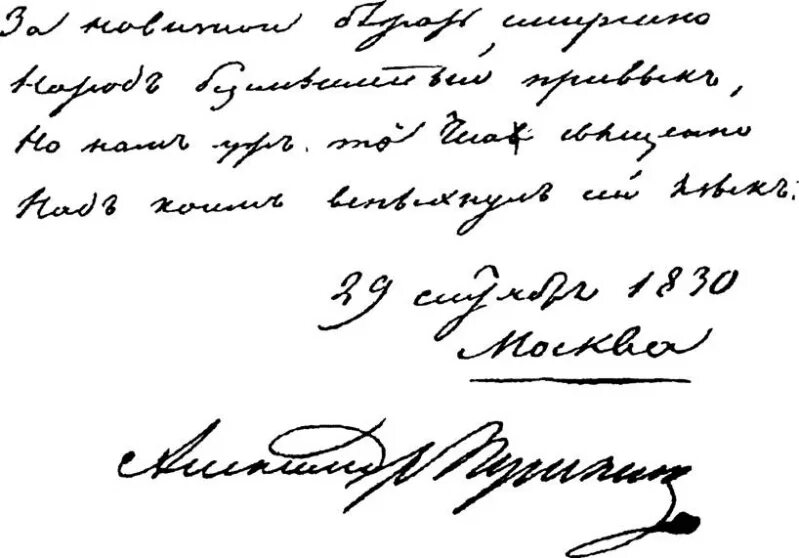 За новизной бѣжать смиренно
Народъ безсмысленный привыкъ,
Но намъ ужъ то чело священно
Надъ коимъ вспыхнулъ сей языкъ.
29 сентября 1830
Москва
Александр Пушкин